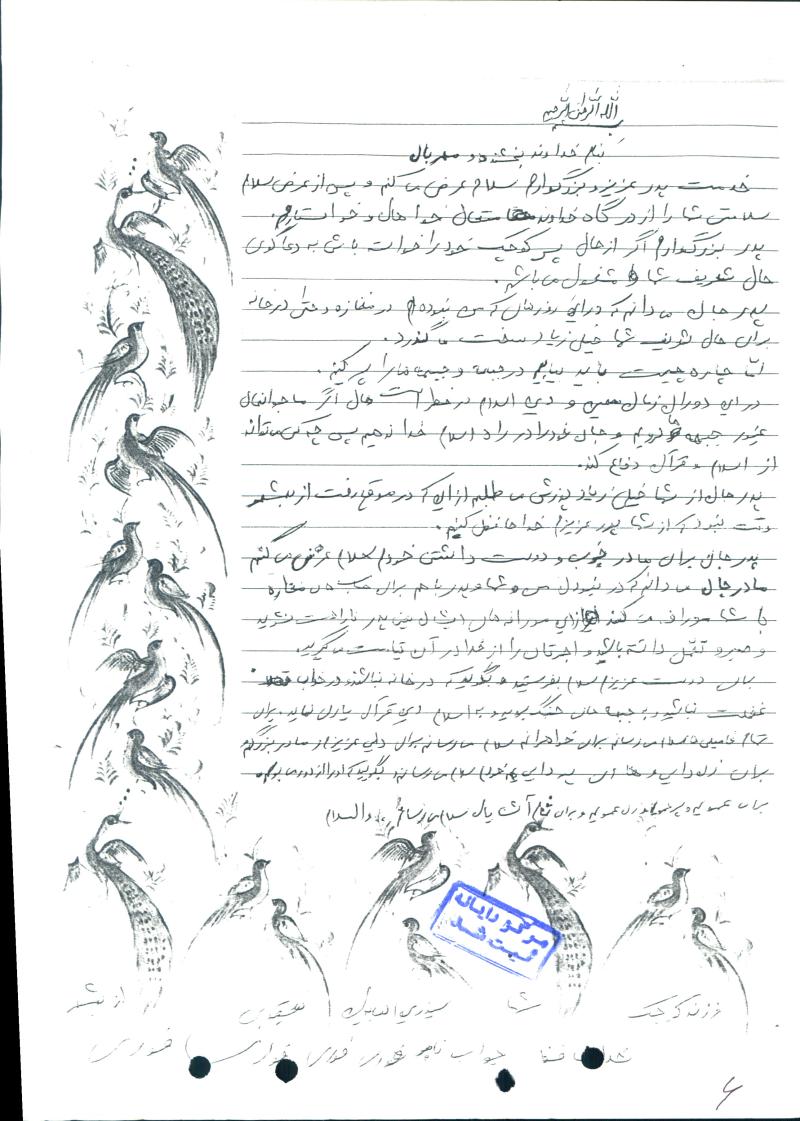 بسم الله الرحمن الرحیم
بنام خداوند بخشنده و مهربان
خدمت پدر عزیز و بزرگوارم سلام عرض می کنم و پس از عرض سلام
سلامتی شما را از درگاه خداوند متعال خواهان و خواستارم.
پدر بزرگوارم اگر از حال پسر کوچک خود را خواسته باشی به دعاگوی
حال شریف شما مشغول می باشم.
پدر جان می دانم که در این روزهای که من نبوده ام در مغازه و حتی در خانه
برای حال شریف شما خیلی زیاد سخت می گذرد.
اما چاره چیست باید بیایم در جبهه و جبهه ها را پر کنیم.
در این دوران زمان و دین اسلام در خطر است حال اگر ما جوانان
غیور جبهه ها نرویم و جان خود را در راه اسلام فدا ندهیم پس چه کسی می تواند
از اسلام و قرآن دفاع کند.
پدر جان از شما خیلی زیاد پوزش می طلبم از این که در موقع رفت از
وقت نبود که از شما پدر عزیزم خداحافظی کنیم.
پدر جان برای مادر خوب و دوست داشتنی خودم سلام عرض می کنم
مادر جان می دانم که در نبودن من و شما و پدر با هم برای مغازه
با شما می کند از این ناراحت نشوید
و صبر و تحمل داشته باشید و اجرتان را از خدا در آن قیامت می گیرید.
برای دوست عزیزم سلام بفرستید و بگویید که در خانه نباشند و در خواب
غفلت نباشید و به جبهه های جنگ بروید و به اسلام دین قرآن یاری نماید. برای
تمام فامیلی ها سلام می رسانم برای خواهرانم سلام می رسانم برای دایی عزیز از مادر بزرگم
برای زن دایی و پسر دایی خودم سلام می رسانم بگویید که
برای عمویم و پسر عمویم و زن عمویم و برای تمام آشنایان سلام می رسانم والسلام
مرکز رایانه
ثبت شد
فرزند کوچک شما
خدا حافظ جواب نامه فوری فوری فوری فوری
۶